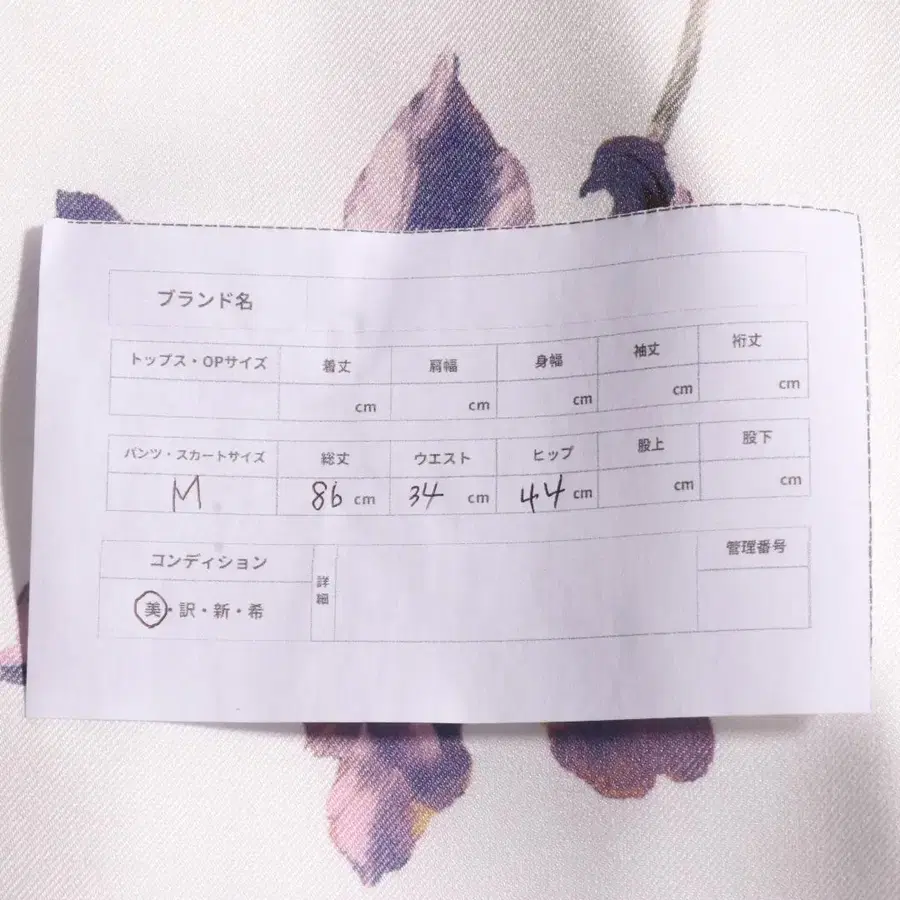 ブランド名
トップス・OPサイズ 着丈 肩幅 身幅 袖丈 裄丈
cm cm cm cm cm
パンツ・スカートサイズ 総丈 ウエスト ヒップ 股上 股下
M 86 cm 34 cm 44 cm cm cm
コンディション 詳細 管理番号
美・訳・新・希